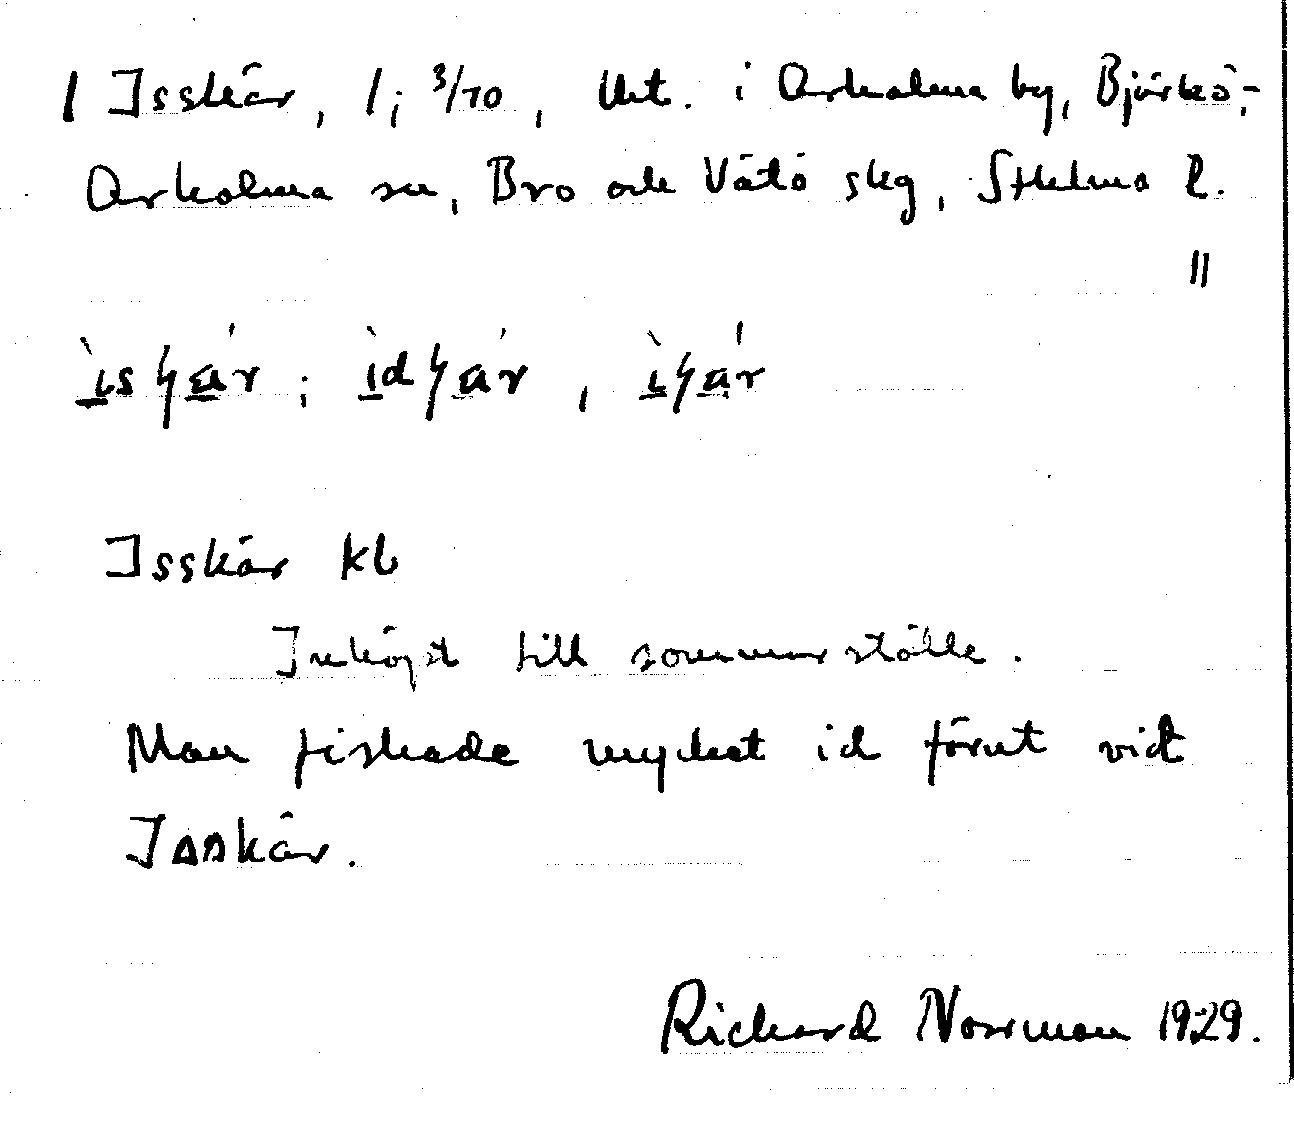 1 Isskär, 1; 3/10, lht. i Arholma by, Björkö-
Arholma sn, Bro och Vätö skg, Sthlms l.
||
Isskär kb
Inköpt till sommarställe.
Man fiskade mycket id förut vid
Isskär.
Richard Norrman 1929.